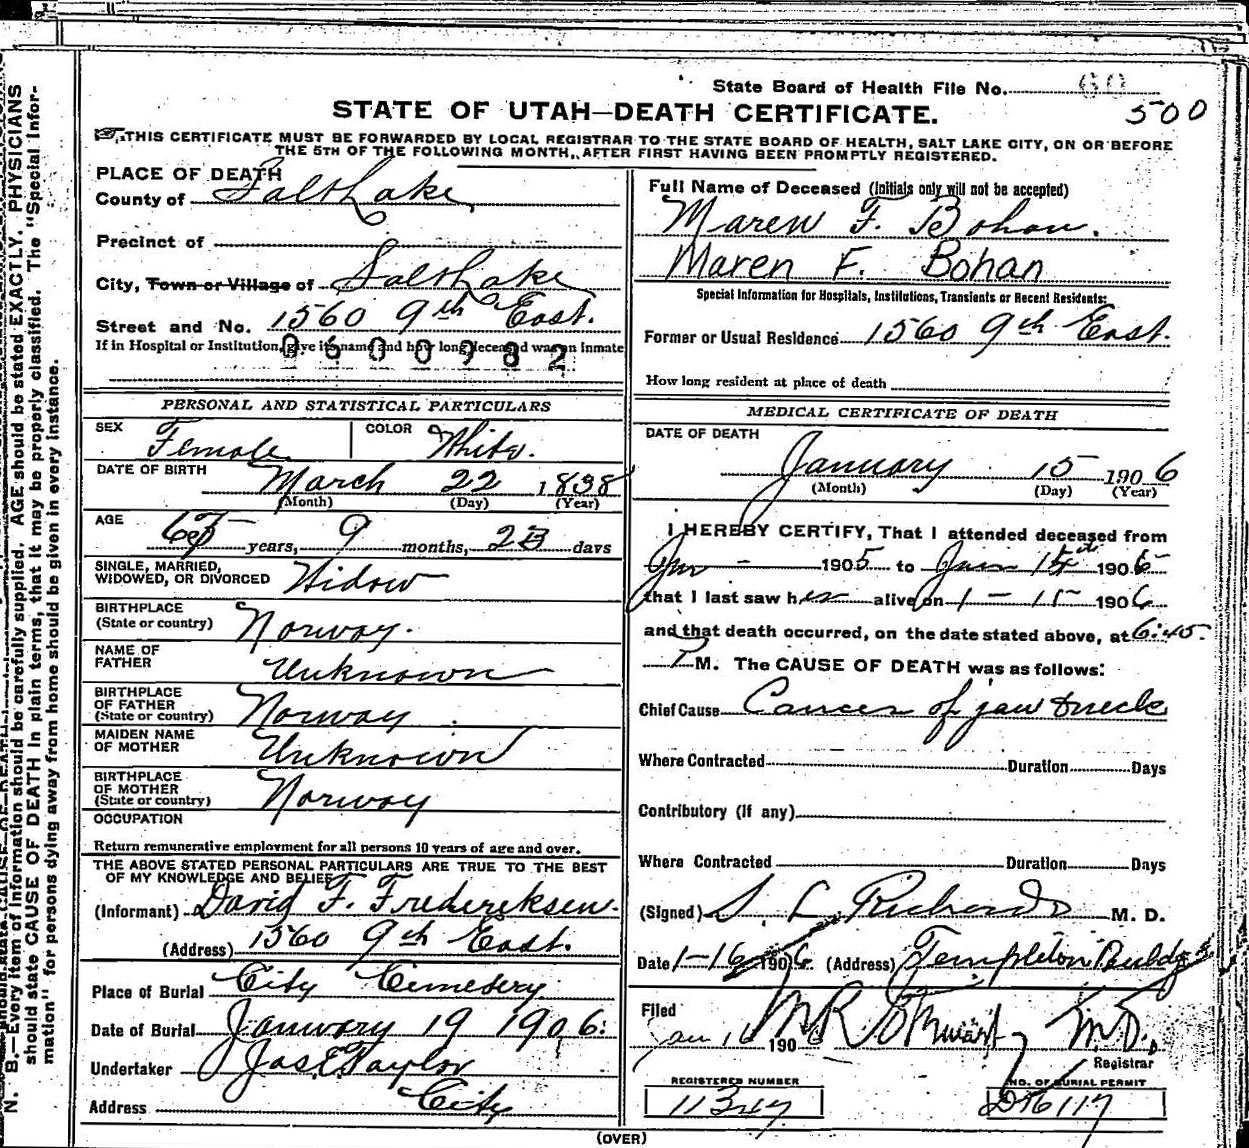 State Board of Health File No. 60
500
STATE OF UTAH—DEATH CERTIFICATE.
THIS CERTIFICATE MUST BE FORWARDED BY LOCAL REGISTRAR TO THE STATE BOARD OF HEALTH, SALT LAKE CITY, ON OR BEFORE
THE 5TH OF THE FOLLOWING MONTH, AFTER FIRST HAVING BEEN PROMPTLY REGISTERED.
PLACE OF DEATH
County of Salt Lake
Precinct of
City, Town or Village of Salt Lake
Street and No. 1560 9th East.
If in Hospital or Institution, give its name and how long deceased was an inmate
0600932
PERSONAL AND STATISTICAL PARTICULARS
SEX Female COLOR White.
DATE OF BIRTH March 22 1838
(Month) (Day) (Year)
AGE 67 years, 9 months, 23 days
SINGLE, MARRIED,
WIDOWED, OR DIVORCED Widow
BIRTHPLACE
(State or country) Norway.
NAME OF
FATHER Unknown
BIRTHPLACE
OF FATHER
(State or country) Norway
MAIDEN NAME
OF MOTHER Unknown
BIRTHPLACE
OF MOTHER
(State or country) Norway
OCCUPATION
Return remunerative employment for all persons 10 years of age and over.
THE ABOVE STATED PERSONAL PARTICULARS ARE TRUE TO THE BEST
OF MY KNOWLEDGE AND BELIEF
(Informant) David F. Frederiksen.
(Address) 1560 9th East.
Place of Burial City Cemetery
Date of Burial January 19 1906.
Undertaker Jos E Taylor
Address City
Full Name of Deceased (Initials only will not be accepted)
Maren F. Bohan.
Maren F. Bohan
Special Information for Hospitals, Institutions, Transients or Recent Residents:
Former or Usual Residence 1560 9th East.
How long resident at place of death
MEDICAL CERTIFICATE OF DEATH
DATE OF DEATH
January 15 1906
(Month) (Day) (Year)
I HEREBY CERTIFY, That I attended deceased from
Jan - 1905 to Jan 15th 1906
that I last saw her alive on 1-15 1906
and that death occurred, on the date stated above, at 6:45
P M. The CAUSE OF DEATH was as follows:
Chief Cause Cancer of jaw & neck
Where Contracted Duration Days
Contributory (If any)
Where Contracted Duration Days
(Signed) S. L. Richards M. D.
Date 1-16 1906 (Address) Templeton Buildg
Filed
Jan 16 1906 M.D.
Registrar
REGISTERED NUMBER
11347
NO. OF BURIAL PERMIT
D6117
(OVER)
N. B.—Every item of information should be carefully supplied. AGE should be stated EXACTLY. PHYSICIANS
should state CAUSE OF DEATH in plain terms, that it may be properly classified. The "Special Infor-
mation" for persons dying away from home should be given in every instance.